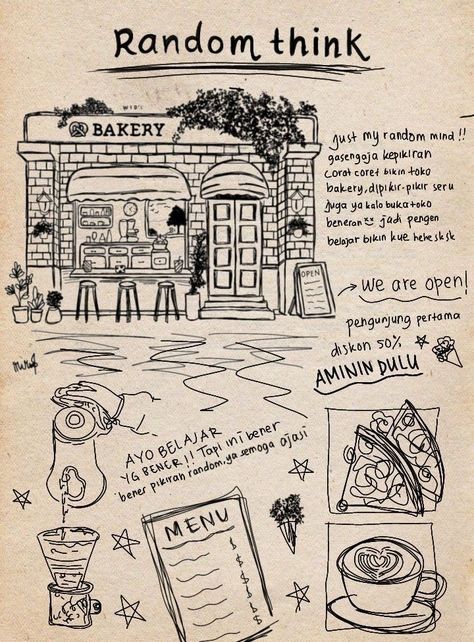 Random think
WID'S
BAKERY
Just my random mind !!
gasengaja kepikiran
corat coret bikin toko
bakery, dipikir-pikir seru
juga ya kalo buka toko
beneran xx jadi pengen
belajar bikin kue hehe sksk
OPEN
We are open!
pengunjung pertama
diskon 50%
AMININ DULU
AYO BELAJAR
YG BENER!! Tapi ini bener
bener pikiran random ya semoga ajasi
MENU
$
$
$
$
$
$
$